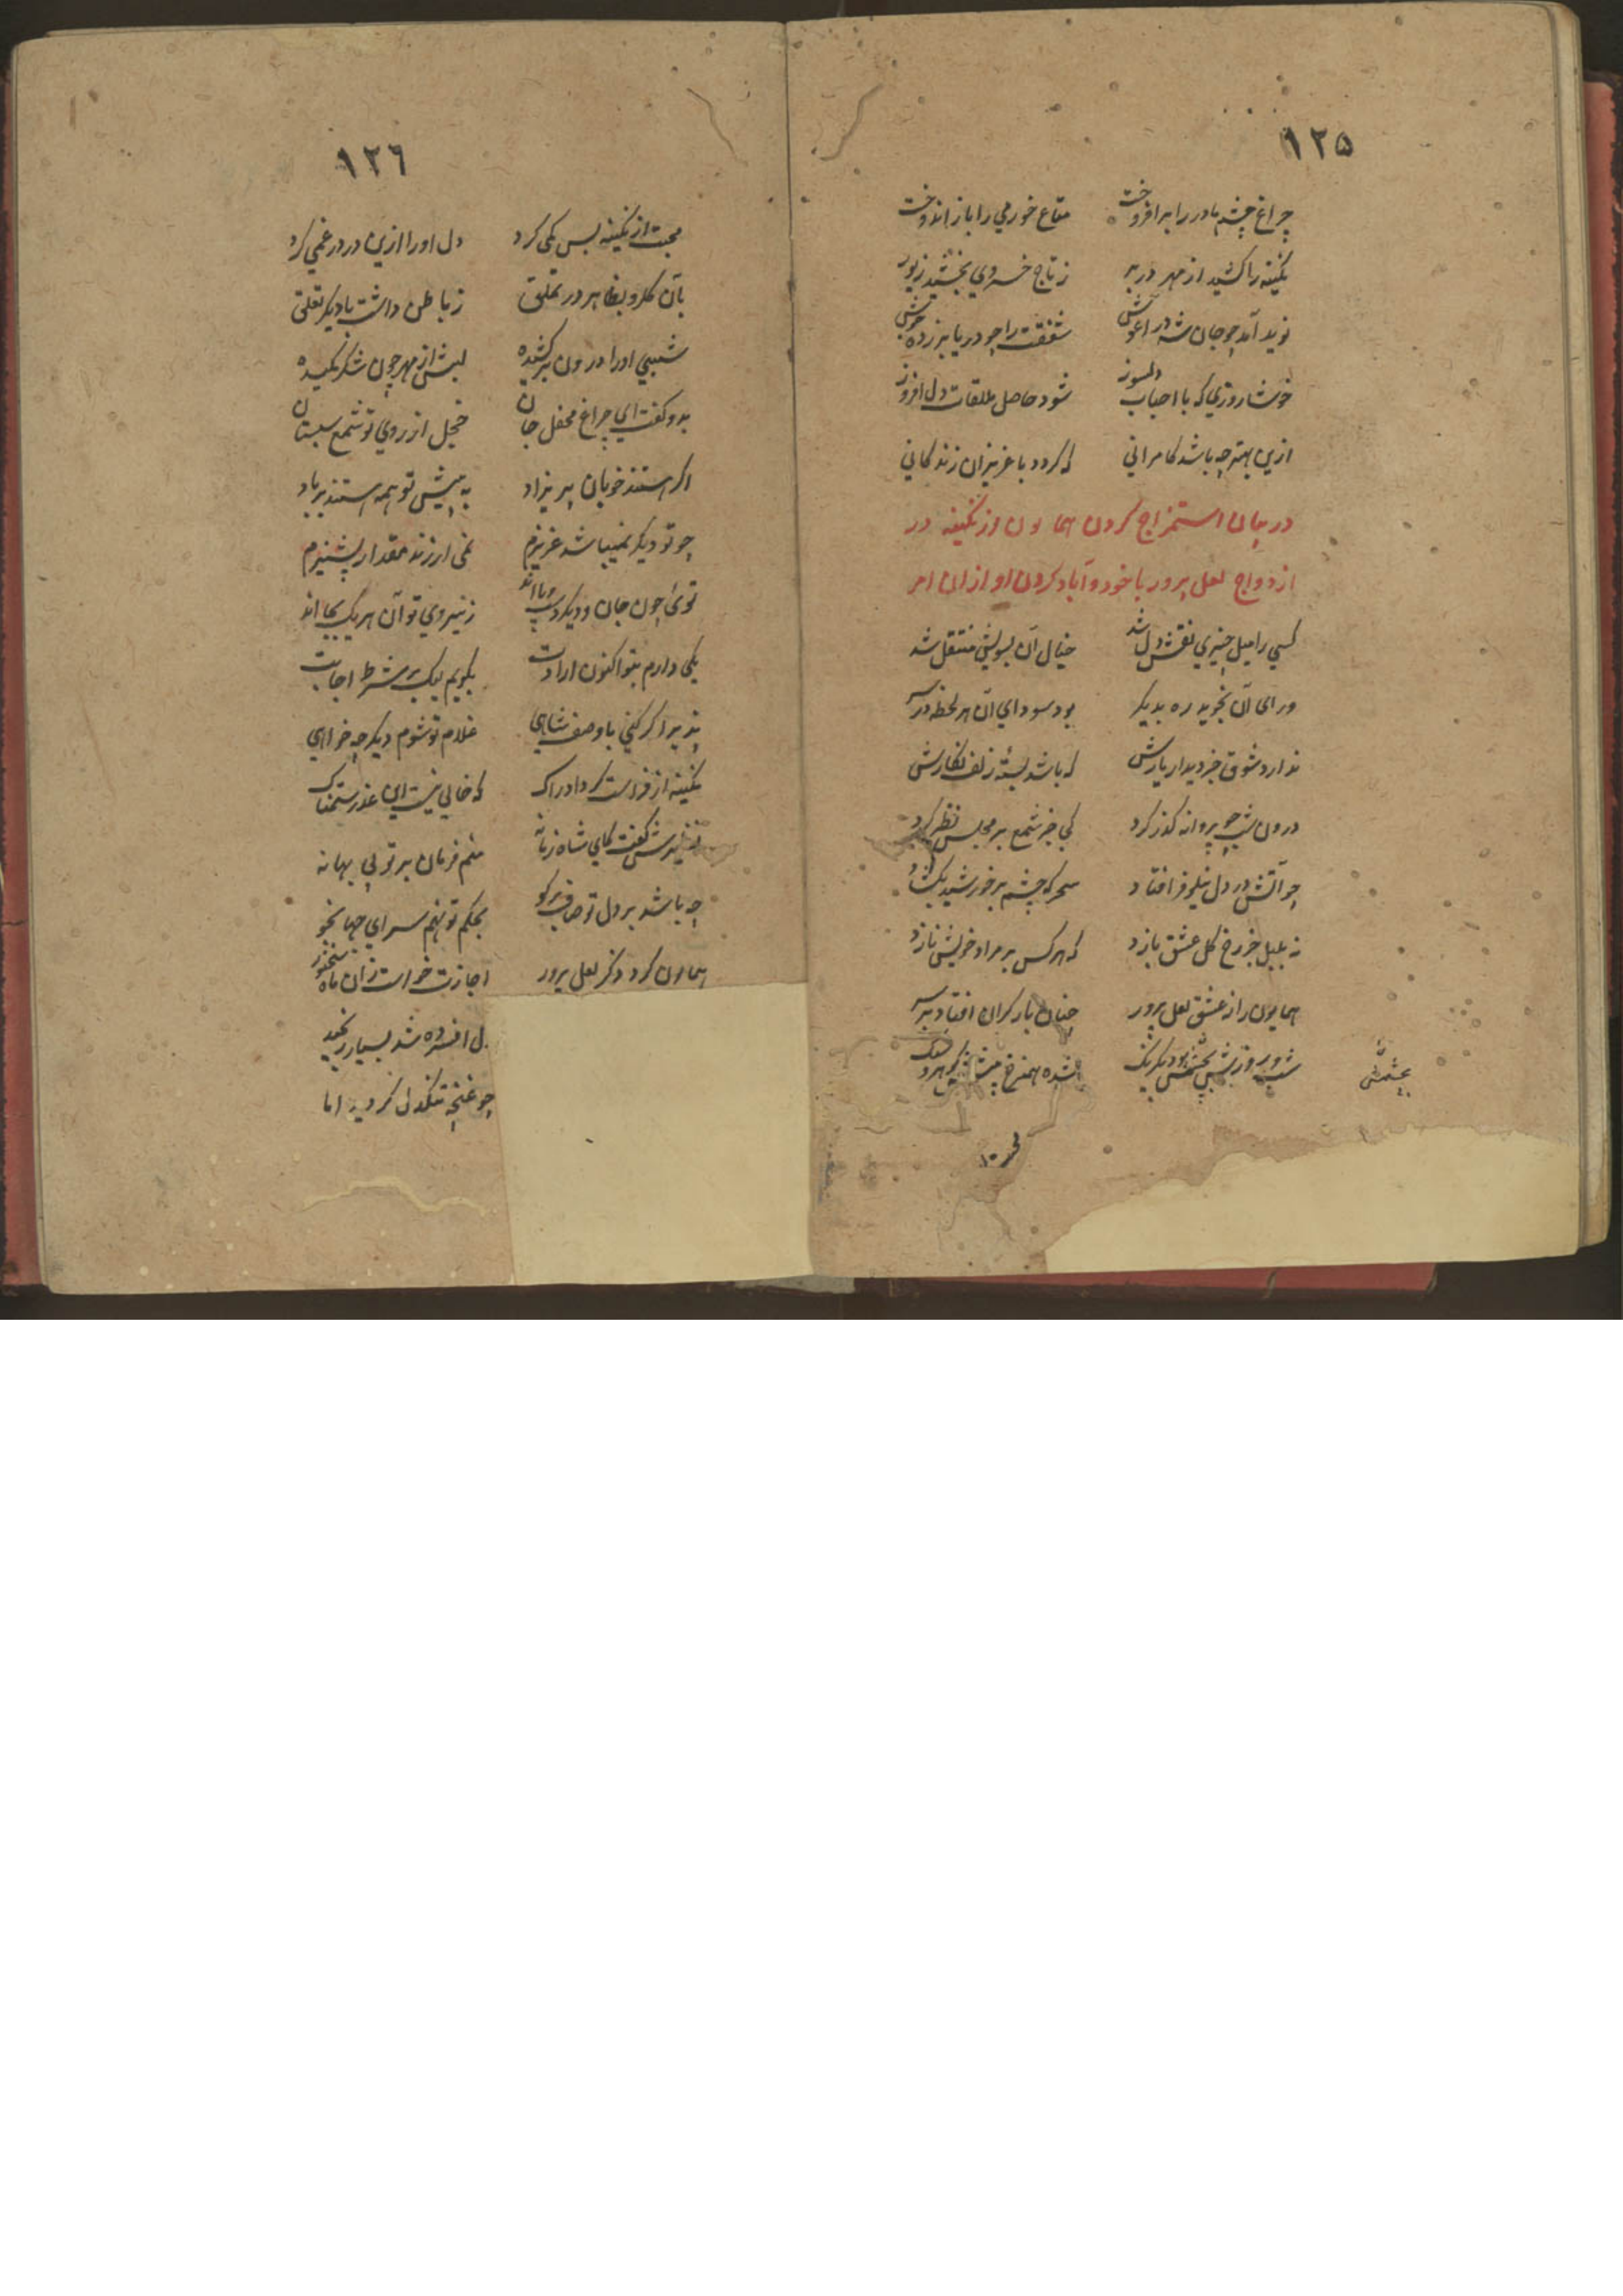 ۱۲۵
چراغ چشم مادر را برافروخت متاع خورمی را باز اندوخت
نگینه را کشید از مهر در بر ز تاج خسروی بخشید زیور
نوید آمد چو جان شه در آغوش شفقت را چو دریا بر زده جوش
خوشا روزی که با احباب دلسوز شود حاصل ملاقات دل افروز
ازین بهتر چه باشد کامرانی که گردد با عزیزان زندگانی
در بیان استمزاج کردن همایون از نگینه در
ازدواج لعل پرور با خود و آباد کردن او ازان امر
کسی را میل چیزی نقش دل شد خیال آن بسویش منتقل شد
ورای آن نجوید ره بدیگر بود سودای آن هر لحظه در سر
ندارد شوق جز دیدار یارش که باشد بسته زلف نگارش
درون شب چو پروانه گذر کرد کی جز شمع بر مجلس نظر کرد
چو آتش در دل نیلوفر افتاد سحر که چشم بر خورشید بگشاد
نه بلبل جز رخ گل عشق بازد که هر کس بر مراد خویش نازد
همایون را ز عشق لعل پرور چنان بار گران افتاد بر سر
شب و روزش بچشمش بود یکرنگ شده همنرخ پیشش گوهر و سنگ
بچشمش
۱۲٦
محبت از نگینه بس کمی کرد دل او را ازین در درغمی کرد
بآن گلرو بظاهر در تملق ز باطن داشت با دیگر تعلق
شبی او را درون بر کشیده لبش از مهر چون شکر مکیده
بدو گفت ای چراغ محفل جان خجل از روی تو شمع شبستان
اگر هستند خوبان پریزاد به پیش تو همه هستند برباد
چو تو دیگر نمیباشد عزیزم نمی ارزند مقدار پشیزم
توئی چون جان و دیگر دست و پا اند ز نیروی تو آن هر یک بجا اند
یکی دارم بتو اکنون ارادت بگویم لیک بر شرط اجابت
پذیرا گر کنی با وصف شاهی غلام تو شوم دیگر چه خواهی
نگینه از فراست کرد ادراک که خالی نیست این عذر ستمناک
کفت کای شاه زمانه منم فرمان بر تو بی بهانه
چه باشد بر دل تو صاف برگو بحکم تو نهم سر ای جهانجو
همایون کرد ذکر لعل پرور اجازت خواست زان ماه سخنور
دل افسرده شد بسیار رنجید
چو غنچه تنگدل گردید اما